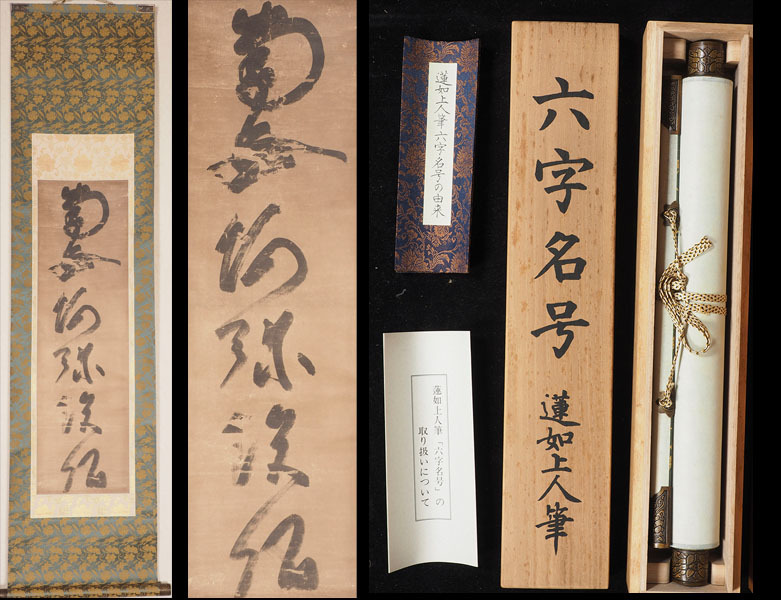 南無阿弥陀佛
南無阿弥陀佛
蓮如上人筆六字名号の由来
蓮如上人筆「六字名号」の
取り扱いについて
六字名号
蓮如上人筆